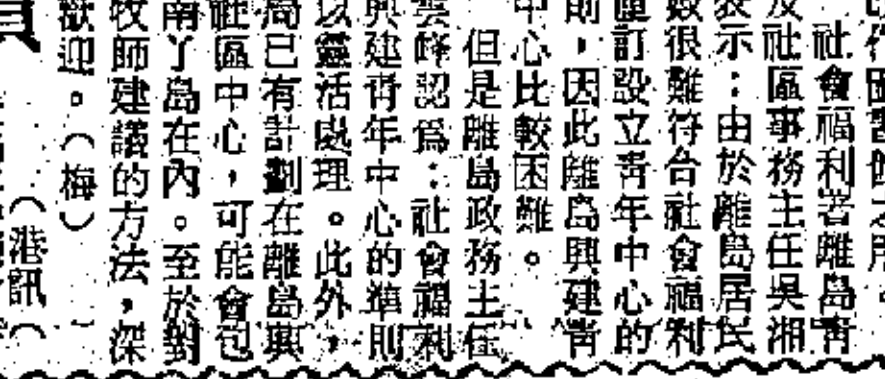 作圖書館之用。
社會福利署離島青
及社區事務主任吳湘
表示：由於離島居民
數很難符合社會福利
釐訂設立青年中心的
則，因此離島興建青
中心比較困難。
但是離島政務主任
雲峰認爲：社會福利
興建青年中心的準則
以靈活處理。此外，
局已有計劃在離島興
社區中心，可能會包
南丫島在內。至於對
牧師建議的方法，深
歡迎。（梅）
（港訊（